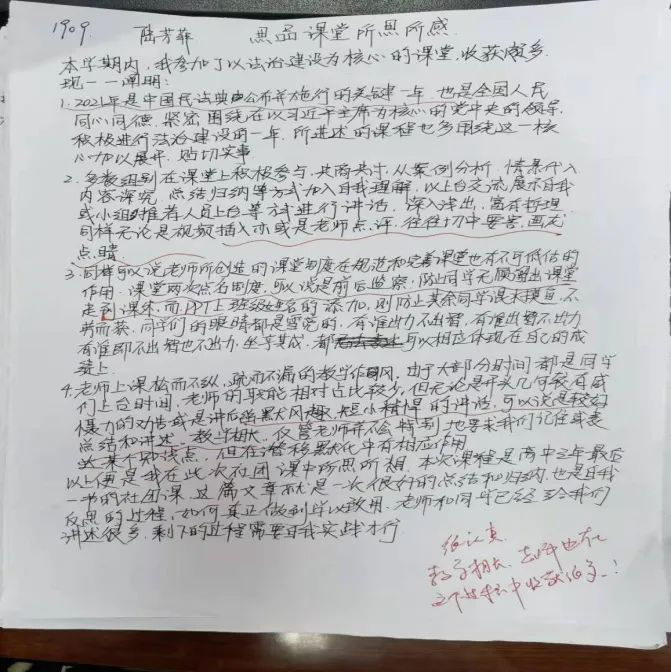 1909. 陆芳菲 思品课堂所思所感
本学期内，我参加了以法治建设为核心的课堂，收获颇多.
现一一阐明：
1. 2021年是中国民法典公布并施行的关键一年，也是全国人民
同心同德，紧密围绕在以习近平主席为核心的党中央的领导，
积极进行法治建设的一年，所讲述的课程也多围绕这一核
心加以展开，贴切实事.
2. 多数组别在课堂上积极参与，共商共讨，从案例分析，情景代入
内容深究，总结归纳等方式加入自我理解，以上台交流，展示自我
或小组推荐人员上台等方式进行讲话，深入浅出，富有哲理，
同样无论是视频插入亦或是老师点评，往往切中要害，画龙
点睛
3. 同样可以说老师所创造的课堂制度在规范和完善课堂也有不可低估的
作用，课堂两次点名制度，可以说是前后监察，防止同学无顾溜出课堂
走到课外，而PPT上班级姓名的添加，则防止其余同学浑水摸鱼，不
劳而获，同学们的眼睛都是雪亮的，有谁出力不出智，有谁出智不出力
有谁即不出智也不出力，坐等其成，都可以相应体现在自己的成
绩上.
4. 老师上课松而不纵，疏而不漏的教学作风，由于大部分时间都是同学
们上台时间，老师的职能相对占比较少，但无论是开头几句较有威
慑力的劝告或是讲后幽默风趣，短小精悍的讲话，可以说是较好
总结和讲述，教学相长，仅管老师并不会特别地要求我们记住或表
达某个知识点，但在潜移默化中有相应作用
以上便是我在此次社团课中所思所想，本次课程是高中三年最后
一书的社团课，这篇文章就是一次很好的总结和归纳，也是自我
反思的过程，如何真正做到学以致用，老师和同学已经给我们
讲述很多，剩下的过程需要自我实践才行
很认真，
教学相长，老师也在
这个过程中收获很多！